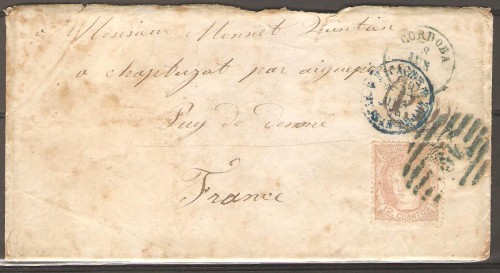 Monsieur Monnet Quintien
a chaptuzat par aigueperse
Puy de dome
France
CORDOBA
8
JUN
12 CUARTOS